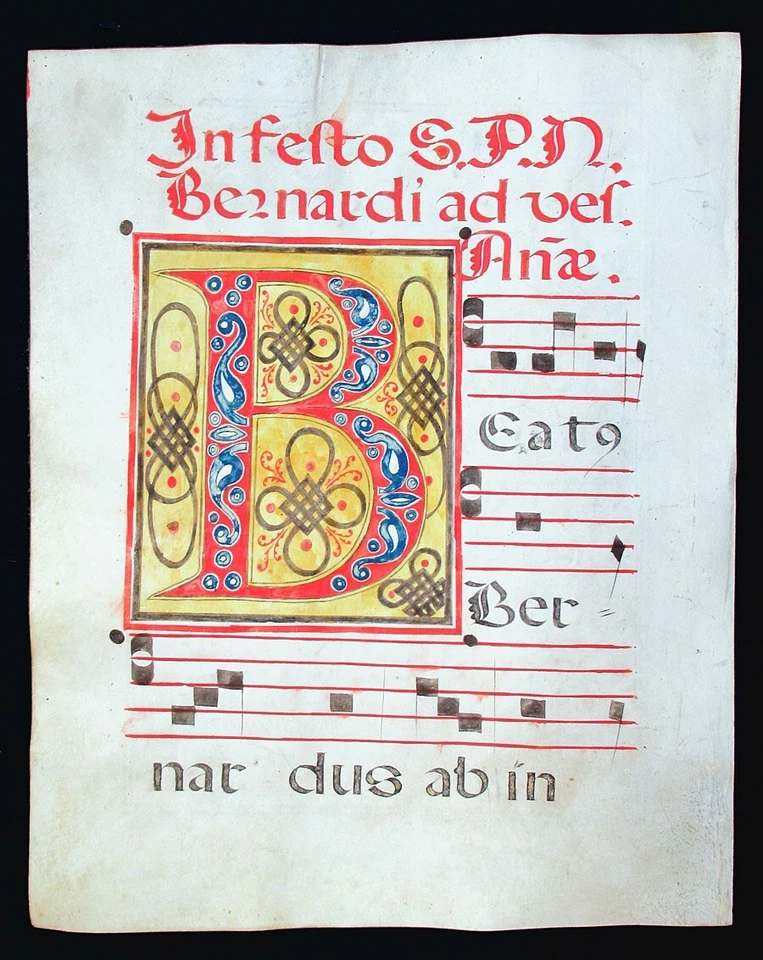 In festo S.P.N.
Bernardi ad ves.
Añæ.
BEatꝰ
Ber=
nar dus ab in